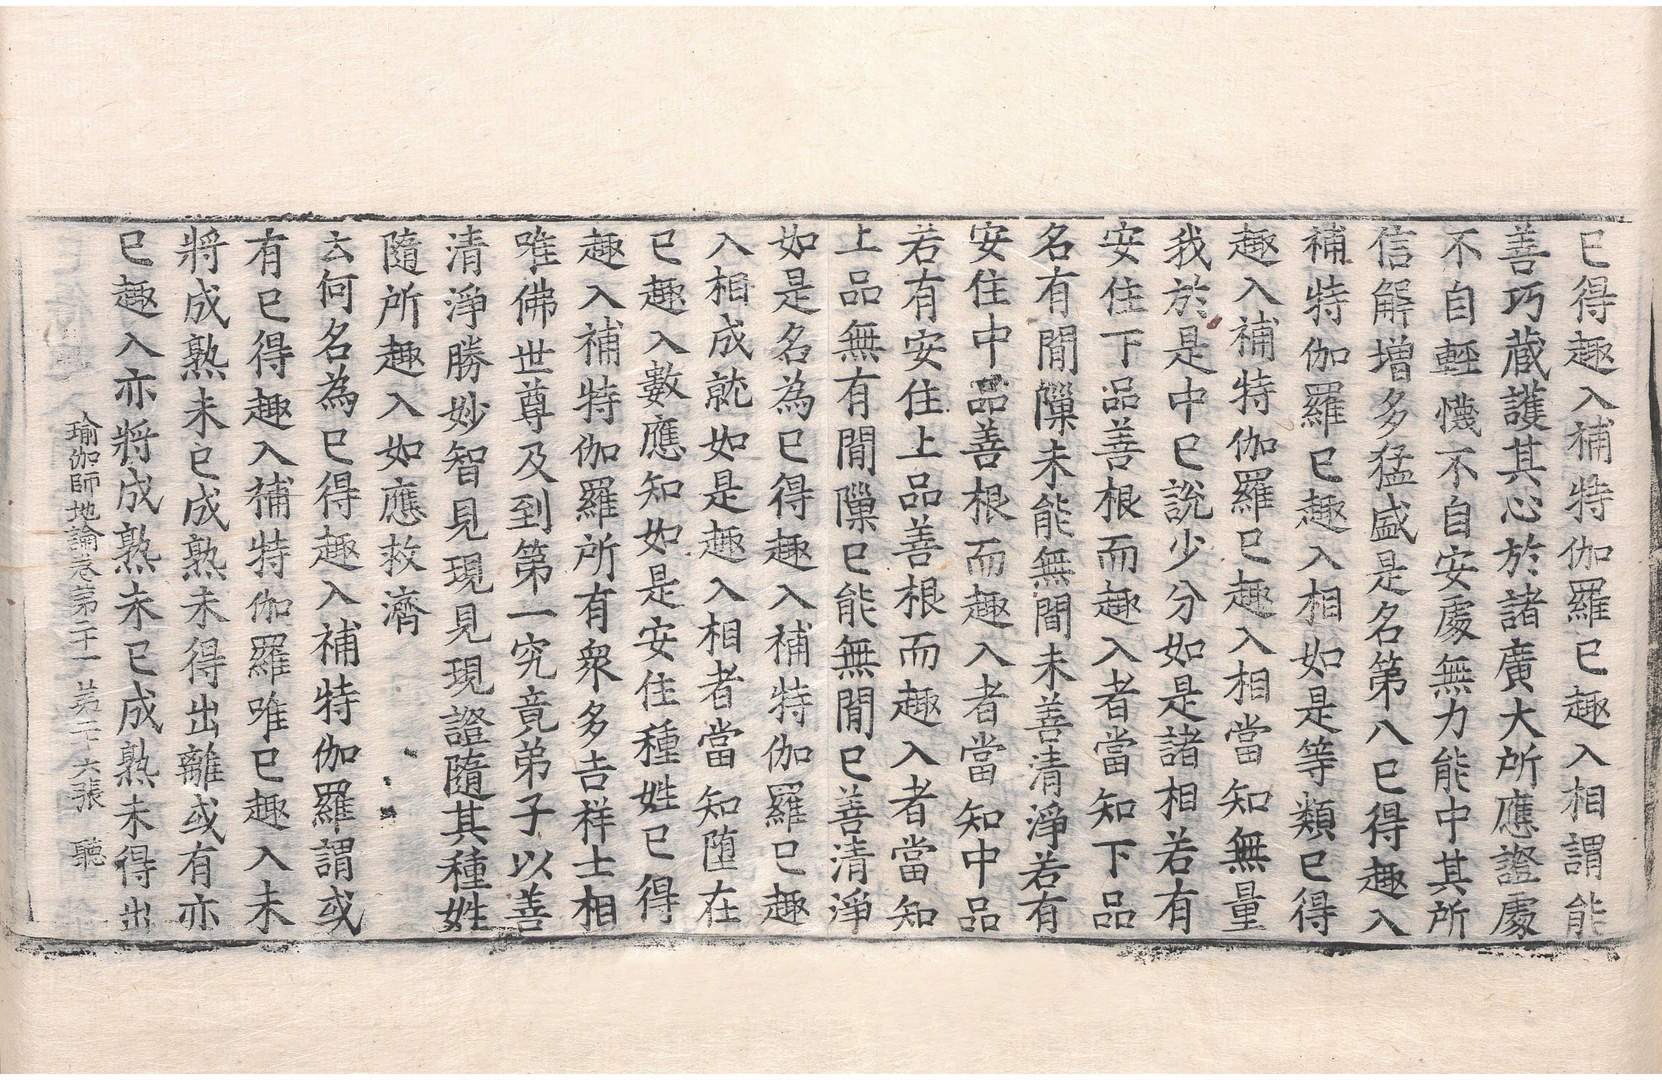 已得趣入補特伽羅已趣入相謂能
善巧藏護其心於諸廣大所應證處
不自輕懱不自安處無力能中其所
信解增多猛盛是名第八已得趣入
補特伽羅已趣入相如是等類已得
趣入補特伽羅已趣入相當知無量
我於是中已說少分如是諸相若有
安住下品善根而趣入者當知下品
名有閒隟未能無閒未善清淨若有
安住中品善根而趣入者當知中品
若有安住上品善根而趣入者當知
上品無有閒隟已能無閒已善清淨
如是名為已得趣入補特伽羅已趣
入相成就如是趣入相者當知墮在
已趣入數應知如是安住種姓已得
趣入補特伽羅所有衆多吉祥士相
唯佛世尊及到第一究竟弟子以善
清淨勝妙智見現見現證隨其種姓
隨所趣入如應救濟
云何名為已得趣入補特伽羅謂或
有已得趣入補特伽羅唯已趣入未
將成熟未已成熟未得出離或有亦
已趣入亦將成熟未已成熟未得出
瑜伽師地論卷第二十一 第二十六張 聽